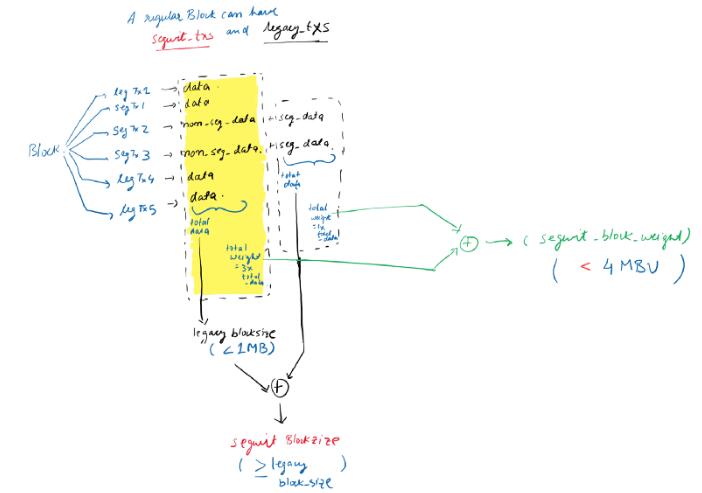 A regular Block can have
segwit_txs and legacy_txs
leg Tx1 → data
seg Tx1 → data
seg Tx2 → non_seg_data + seg_data
Block
seg Tx3 → non_seg_data. + seg_data.
leg Tx4 → data
leg Tx5 → data.
total
data
total
data
total
weight
= 1x
total
-data
total
weight
= 3x
total
-data
⊕ → ( segwit_block_weight)
( < 4 MBU )
legacy blocksize
( < 1MB)
⊕
segwit Blockzize
( ≥ legacy )
block_size